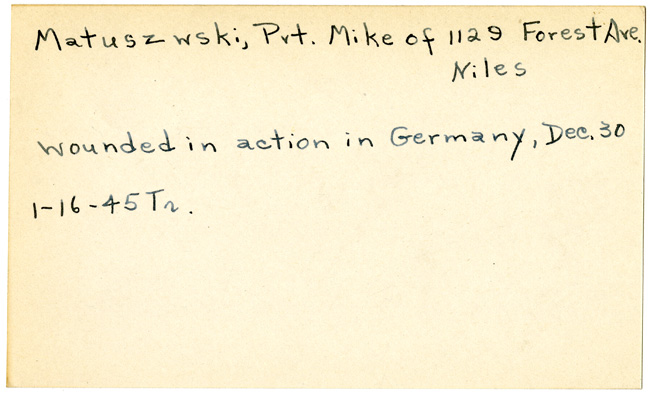 Matuszwski, Pvt. Mike of 1129 Forest Ave.
Niles
wounded in action in Germany, Dec. 30
1-16-45 Tr.